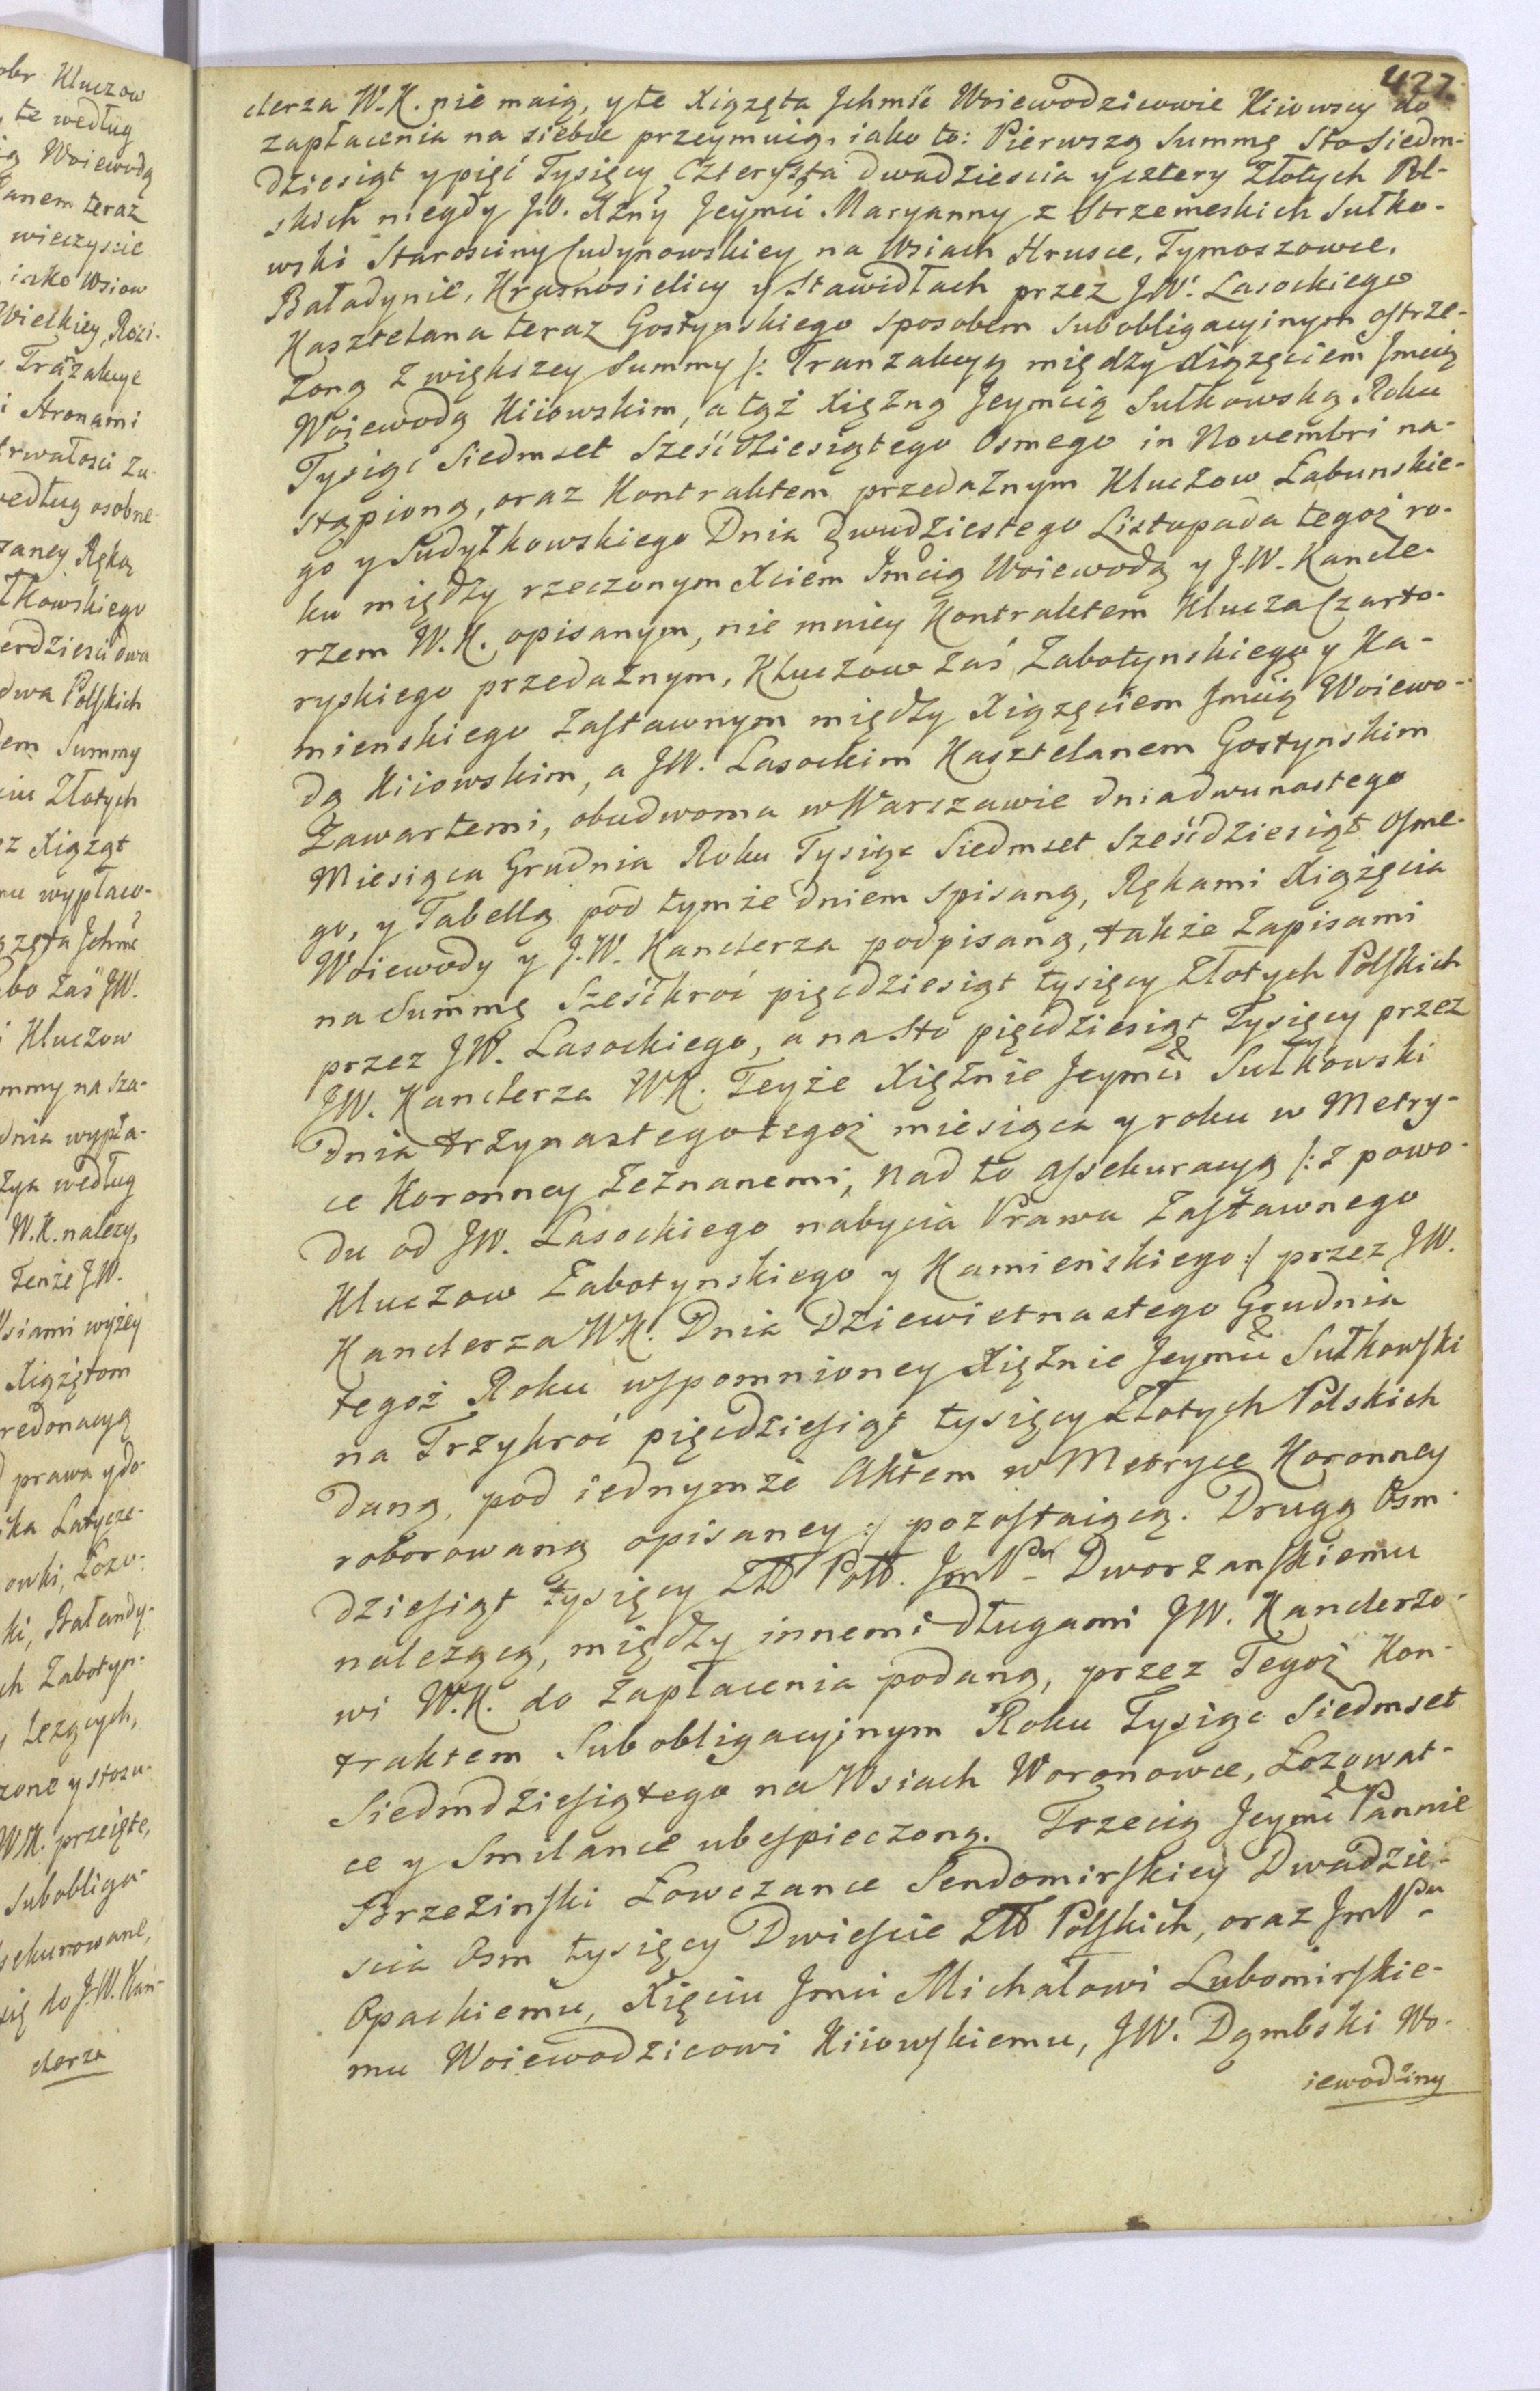 obr Kluczow
te według
ią Woiewodą
anem teraz
wieczyscie
iako Wsiow
Wielkiey, Rozi-
Trãzakcye
i Stronami
trwałosci Za-
według osobne
zaney Ręką
tkowskiego
erdziesci dwa
dwa Polskich
dem Summy
ciu Złotych
ez Xiążąt
mu wypłaco-
ążęta Jchmć
Zaś JW.
i Kluczow
mmy na Sza-
dnia wypła-
według
W. K. nalezy,
Tenże J W.
Wsiami wyżey
Xiążętom
redonacyą
prawa y do-
ika Latycze-
owki, Łozo-
ki, Bałandy-
ch Zabotyn-
y lezących,
zone y stosu-
W K. przeięte,
Subobliga-
ssekurowane,
się do J. W. Kan-
clerza
427.
clerza W. K. nie maią, y te Xiążęta Jchmść Woiewodzicowie Kiiowscy do
zapłacenia na siebie przeymuią, iako to: Pierwszą Summę Sto Siedm-
dziesiąt y pięć Tysięcy Czterysta dwadziescia y cztery Złotych Pol-
skich niegdy J. O. Xżny Jeymci Maryanny z Strzemeskich Sułko-
wski Starosciny Cudynowskiey na Wsiach Hrusce, Tymoszowce,
Baładynie, Krasnosielicy y Stawidłach przez JW. Lasockiego
Kasztelana teraz Gostynskiego sposobem subobligacyinym ostrze-
żoną z większey Summy /: Tranzakcyą między Xiążęciem Jmcią
Woiewodą Kiiowskim, a tąż Xiężną Jeymcią Sułkowską Roku
Tysiąc Siedmset Sześćdziesiątego Osmego in Novembri na-
stąpioną, oraz Kontraktem przedażnym Kluczow Łabunskie-
go y Sudyłkowskiego Dnia dwudziestego Listopada tegoż ro-
ku między rzeczonym Xciem Jmcią Woiewodą y J. W. Kancle-
rzem W. K. opisanym, nie mniey Kontraktem Klucza Czarto-
ryskiego przedażnym, Kluczow zaś Zabotynskiego y Ka-
mienskiego Zastawnym między Xiążęciem Jmcią Woiewo-
dą Kiiowskim, a JW. Lasockim Kasztelanem Gostynskim
Zawartemi, obudwoma w Warszawie dnia dwunastego
Miesiąca Grudnia Roku Tysiąc Siedmset Sześćdziesiąt Osme-
go, y Tabellą pod tymże dniem spisaną, Rękami Xiążęcia
Woiewody y J. W. Kanclerza podpisaną, także Zapisami
na Summę Sześćkroć pięcdziesiąt tysięcy Złotych Polskich
przez JW. Lasockiego, a na Sto pięcdziesiąt Tysięcy przez
JW. Kanclerza W K. Teyże Xiężnie Jeymci Sułkowski
Dnia trzynastego tegoż miesiąca y roku w Metry-
ce Koronney Zeznanemi, nad to assekuracyą /: z powo-
du od JW. Lasockiego nabycia Prawa Zastawnego
Kluczow Zabotynskiego y Kamieńskiego :/ przez JW.
Kanclerza W. K. Dnia Dziewietnastego Grudnia
tegoż Roku wspomnioney Xiężnie Jeymci Sułkowski
na Trzykroć pięcdziesiąt tysięcy Złotych Polskich
daną, pod iednymże Aktem w Metryce Koronney
roborowaną opisaney :/ pozostaiącą. Drugą Osm-
dziesiąt tysięcy Złł Poll. JmPu Dworzanskiemu
nalezącą, między innemi długami JW. Kanclerzo-
wi W. K. do Zapłacenia podaną, przez Tegoż Kon-
traktem Subobligacyjnym Roku Tysiąc Siedmset
Siedmdziesiątego na Wsiach Woronowce, Łozowat-
ce y Smilance ubespieczoną. Trzecią Jeymci Pannie
Brzezinski Łowczance Sendomirskiey Dwadzie-
scia Osm tysięcy Dwiescie Złł Polskich, oraz JmPu
Opackiemu, Xięciu Jmci Michałowi Lubomirskie-
mu Woiewodzicowi Kiiowskiemu, JW. Dąmbski Wo-
iewodziny